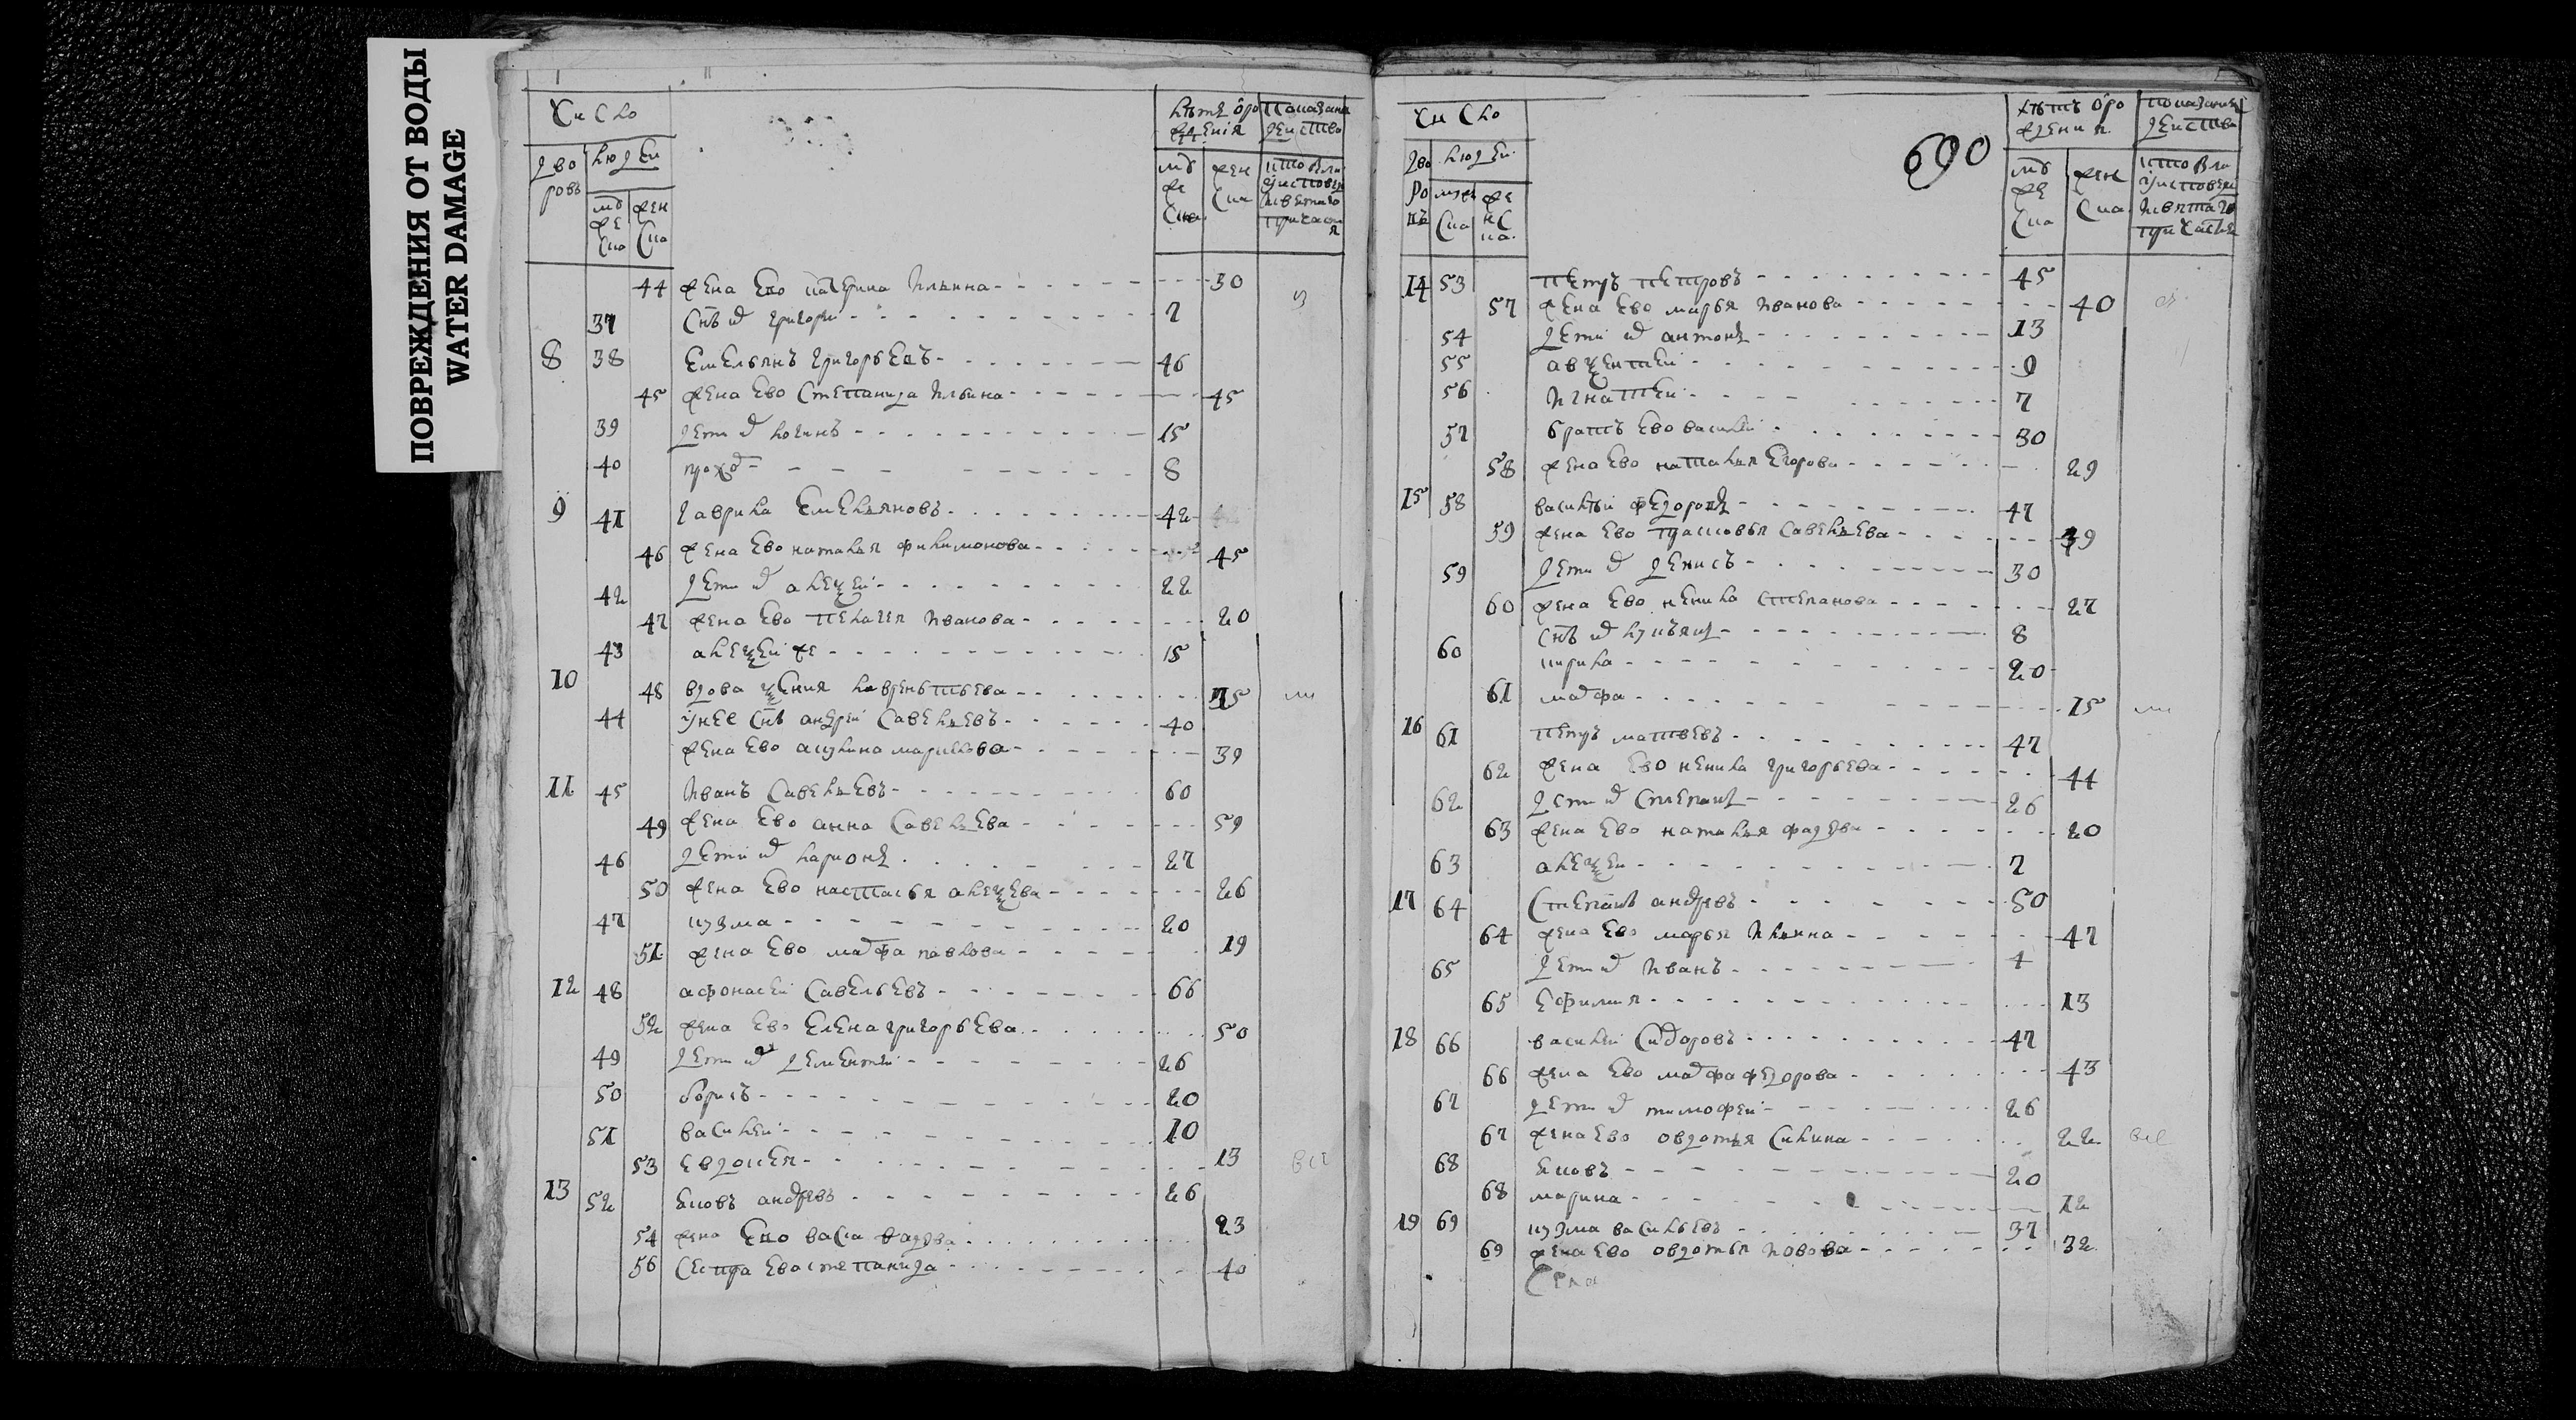 ПОВРЕЖДЕНИЯ ОТ ВОДЫ
WATER DAMAGE
Число
лѣтъ ѿро
жденія
показание
действа
дво
ровъ
людеи
му
же
ска
жен
ска
му
же
ска
жен
ска
кто был
у исповеди
и святаго
причасти
я
44 жена ево катерина ильина 30
37 снъ их григореи 7
8 38 емельянъ григорьевъ 46
45 жена ево степанида ильина 45
39 дети их логинъ 15
40 прохор 8
9 41 гаврила емельяновъ 42
46 жена ево наталья филимонова 45
42 дети их алеѯеи 22
47 жена ево пелагея иванова 20
43 алеѯеи же 15
10 48 вдова ѯения лаврентьева 75
44 у нее снъ андреи савельевъ 40
жена ево акулина маркелова 39
11 45 иванъ савельевъ 60
49 жена ево анна савельева 59
46 дети их ларионъ 27
50 жена ево настасья алеѯева 26
47 кузма 20
51 жена ево марфа павлова 19
12 48 афонасеи савельевъ 66
52 жена ево елена григорьева 50
49 дети их дементеи 26
50 борисъ 20
51 василеи 10
53 евдокея 13 все
13 52 яковъ андревъ 26
54 жена ево васса фадева 23
56 сестра ева степанида 40
690
Число
лѣтъ ѿро
ждения
показание
действа
дво
ро
въ
людеи
муже
ска
же
нс
ка
му
же
ска
жен
ска
кто был
у исповеди
и святаго
причастия
14 53 петръ петровъ 45
57 жена ево марья иванова 40
54 дети их антонъ 13
55 авѯентеи 9
56 игнатеи 7
57 братъ ево василеи 30
58 жена ево наталья егорова 29
15 58 василеи федоровъ 47
59 жена ево прасковья савельева 39
59 дети их денисъ 30
60 жена ево ненила степанова 27
60 снъ их лукьянъ 8
кирила 20
61 марфа 15
16 61 петръ матвевъ 47
62 жена ево ненила григорьева 44
62 дети их степанъ 26
63 жена ево наталья фадева 20
63 алеѯеи 7
17 64 степанъ андревъ 50
64 жена ево марья ильина 47
65 дети их иванъ 4
65 ефимия 13
18 66 василеи сидоровъ 47
66 жена ево марфа федорова 43
67 дети их тимофеи 26
67 жена ево овдотья силина 22 все
68 яковъ 20
68 марина 12
19 69 кузма васильевъ 37
69 жена ево овдотья иовова 32
села